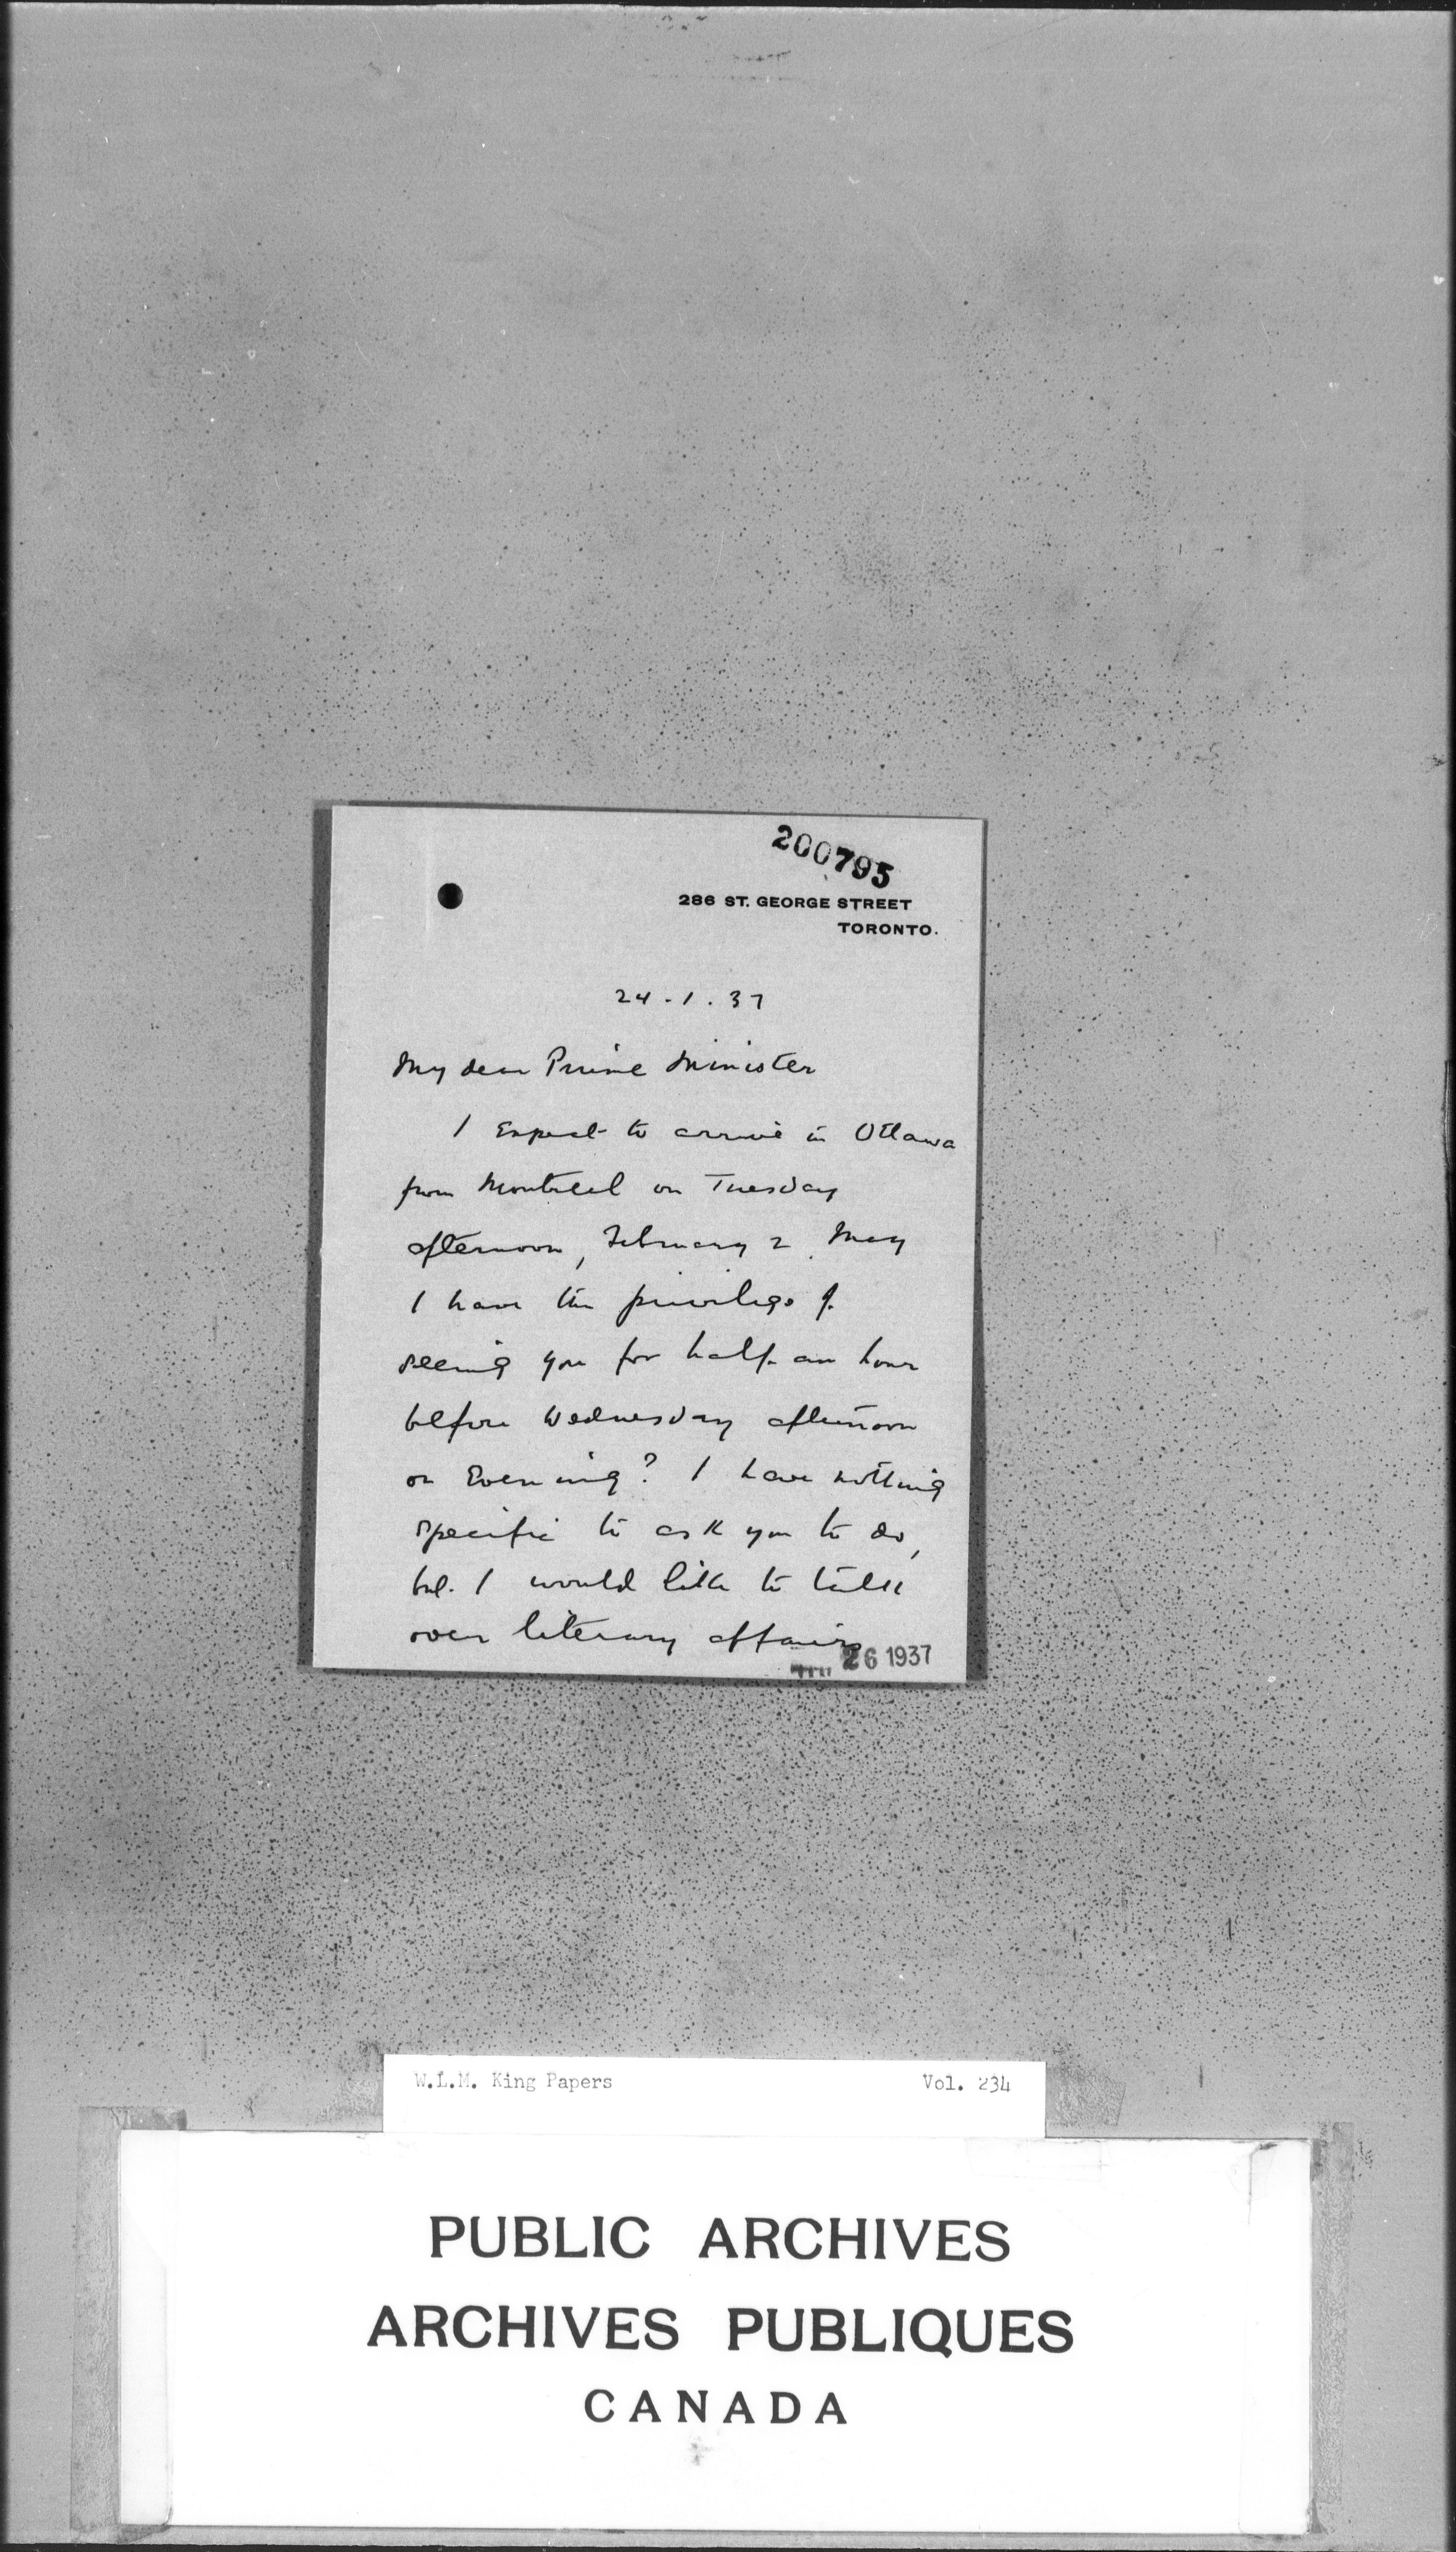 200795
286 ST. GEORGE STREET
TORONTO.
24.1.37
My dear Prime Minister
I expect to arrive in Ottawa
from Montreal on Tuesday
afternoon, February 2. May
I have the privilege of
seeing you for half an hour
before Wednesday afternoon
or evening? I have nothing
specific to ask you to do,
but I would like to talk
over literary affairs
26 1937
W.L.M. King Papers Vol. 234
PUBLIC ARCHIVES
ARCHIVES PUBLIQUES
CANADA